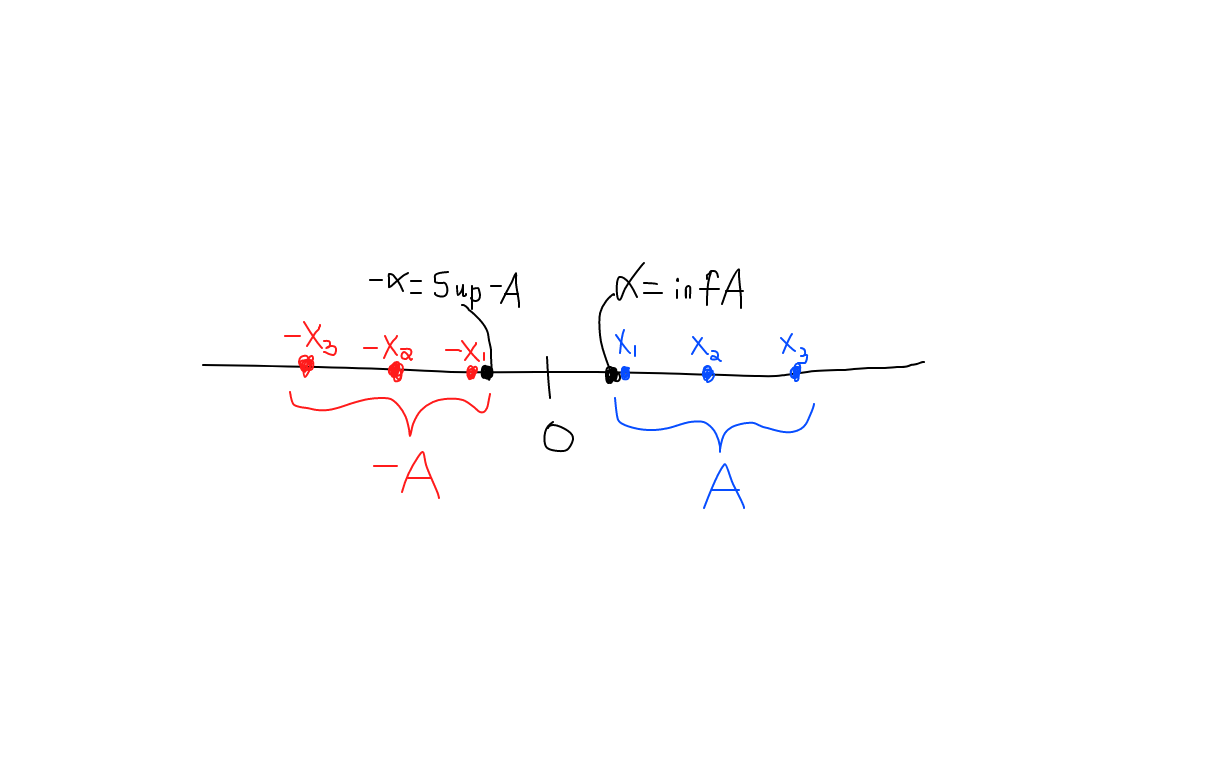 -α = Sup -A
α = inf A
-x₃ -x₂ -x₁
x₁ x₂ x₃
0
-A
A